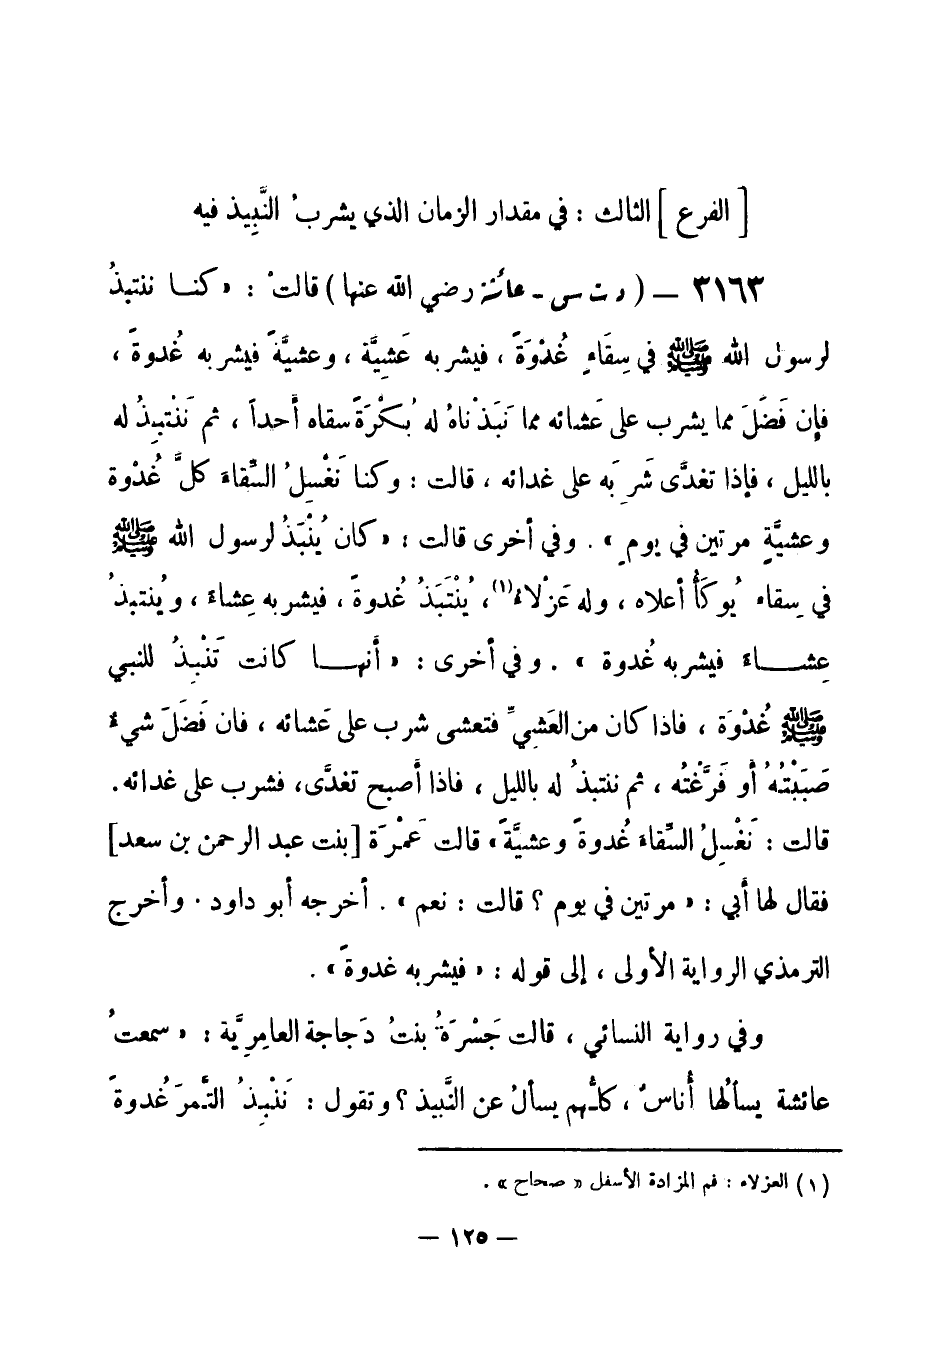 [ الفرع ] الثالث : في مقدار الزمان الذي يشربُ النَّبيذ فيه
٣١٦٣ — ( د ت س - عائشة رضي الله عنها ) قالتْ : «كنا ننتبذُ
لرسول الله ﷺ في سِقَاءٍ غُدْوَةً ، فيشربه عَشِيَّة ، وعشيَّةً فيشربه غُدوةً ،
فإن فَضَلَ مما يشرب على عَشائه مما نَبَذْناهُ له بُكْرَةً سقاه أحداً ، ثم نَنْتبِذُ له
بالليل ، فإذا تغدَّى شَرِبَه على غدائه ، قالت : وكنا نَغْسِلُ السِّقاءَ كلَّ غُدْوة
وعشيَّةٍ مرتين في يومٍ » . وفي أخرى قالت : «كان يُنْبَذُ لرسول الله ﷺ
في سِقاء يُوكَأُ أعلاه ، وله عَزْلاءُ(١)، يُنْتَبَذُ غُدوةً ، فيشربه عِشاءَ ، ويُنتبذُ
عِشاءً فيشربه غُدوة » . وفي أخرى : « أنها كانت تَنْبِذُ للنبي
ﷺ غُدْوَة ، فاذا كان من العَشِيِّ فتعشى شرب على عَشائه ، فان فَضَلَ شيءٌ
صَبَبْتُهُ أو فَرَّغْتُه ، ثم ننتبذُ له بالليل ، فاذا أصبح تغدَّى، فشرب على غدائه.
قالت : نَغْسِلُ السِّقاءَ غُدوةً وعشيَّةً» قالت عَمْرَة [بنت عبد الرحمن بن سعد]
فقال لها أبي : « مرتين في يوم ؟ قالت : نعم » . أخرجه أبو داود . وأخرج
الترمذي الرواية الأولى ، إلى قوله : « فيشربه غدوةً » .
وفي رواية النسائي ، قالت جَسْرَةُ بنتُ دَجاجة العامرِيَّة : « سمعتُ
عائشة يسألُها أُناسٌ ، كلُّهم يسألُ عن النَّبيذ ؟ وتقول : نَنْبِذُ التَّمرَ غُدوةً
(١) العزلاء : فم المزادة الأسفل « صحاح » .
— ١٢٥ —